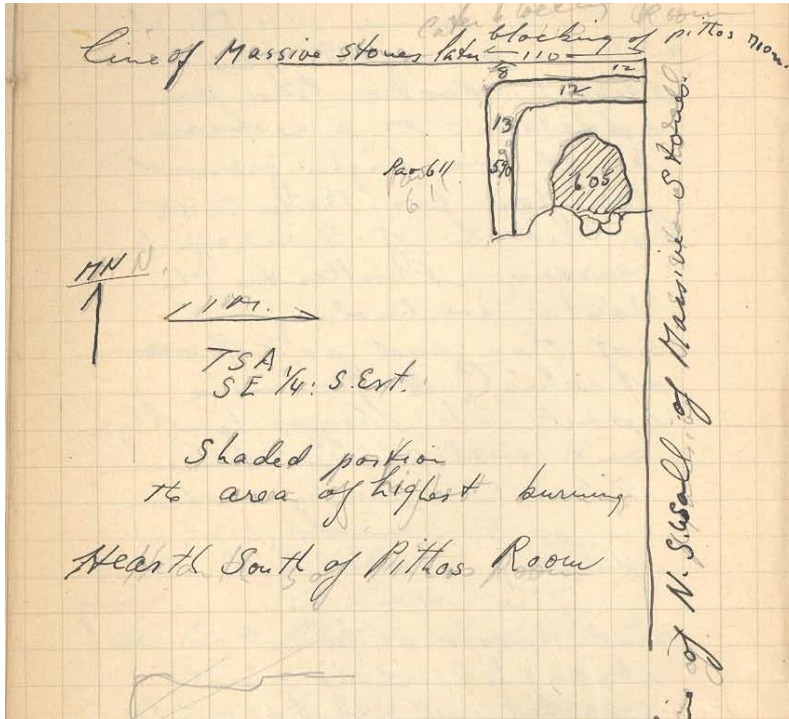 Line of Massive Stones later blocking of pithos room.
110
8
12
12
13
590
605
Pav 611
611
MN N
1 M.
TSA
SE 1/4: S. Ext.
Shaded portion
area of highest burning
Hearth South of Pithos Room
of N. S. Wall of Massive Stones